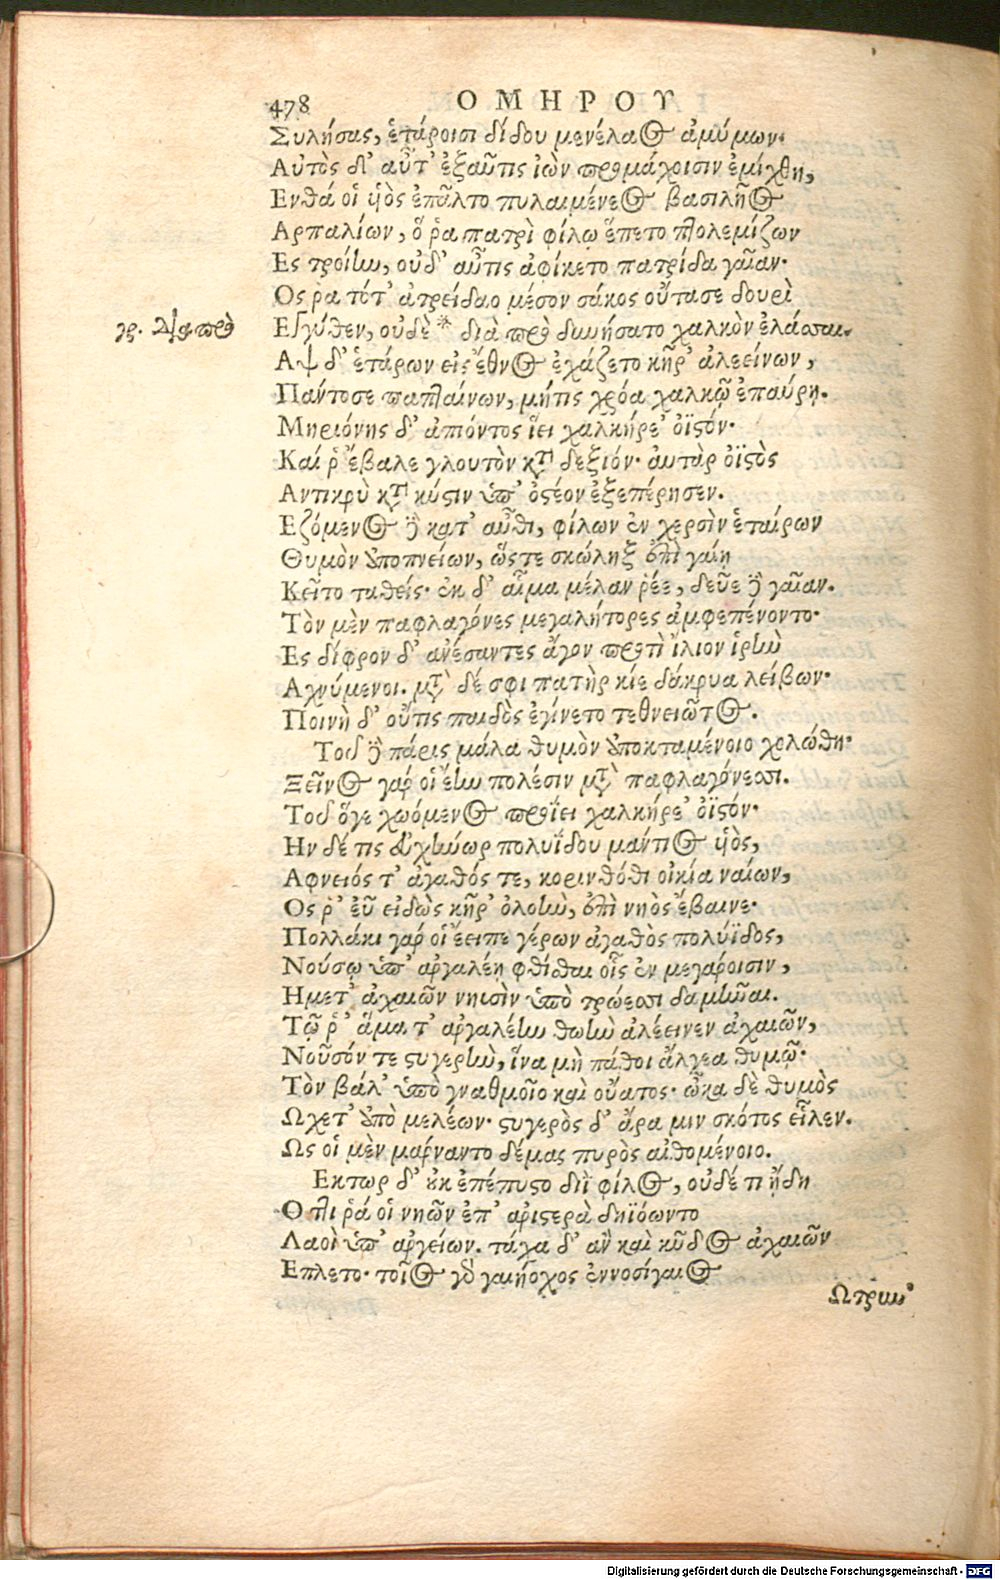 478 ΟΜΗΡΟΥ
Συλήσας, ἑτάροισι δίδου μενέλαος ἀμύμων·
Αὐτὸς δ' αὖτ' ἐξαῦτις ἰὼν προμάχοισιν ἐμίχθη,
Ενθά οἱ υἱὸς ἐπᾶλτο πυλαιμένεος βασιλῆος
Αρπαλίων, ὅ ῥα πατρὶ φίλῳ ἕπετο πτολεμίζων
Ες τροίην, οὐδ' αὖτις ἀφίκετο πατρίδα γαῖαν·
Ος ῥα τότ' ἀτρείδαο μέσον σάκος οὔτασε δουρὶ
γρ. διαπρὸ Εγγύθεν, οὐδὲ * διὰ πρὸ δυνήσατο χαλκὸν ἐλάσσαι.
Αψ δ' ἑτάρων εἰς ἔθνος ἐχάζετο κῆρ' ἀλεείνων,
Πάντοσε παπταίνων, μήτις χρόα χαλκῷ ἐπαύρῃ.
Μηριόνης δ' ἀπιόντος ἵει χαλκήρε' ὀϊστόν·
Καί ῥ' ἔβαλε γλουτὸν κατὰ δεξιόν· αὐτὰρ ὀϊστὸς
Αντικρὺ κατὰ κύστιν ὑπ' ὀστέον ἐξεπέρησεν.
Εζόμενος δὲ κατ' αὖθι, φίλων ἐν χερσὶν ἑταίρων
Θυμὸν ἀποπνείων, ὥστε σκώληξ ἐπὶ γαίῃ
Κεῖτο ταθείς· ἐκ δ' αἷμα μέλαν ῥέε, δεῦε δὲ γαῖαν.
Τὸν μὲν παφλαγόνες μεγαλήτορες ἀμφεπένοντο·
Ες δίφρον δ' ἀνέσαντες ἄγον προτὶ ἴλιον ἱρὴν
Αχνύμενοι. μετὰ δέ σφι πατὴρ κίε δάκρυα λείβων·
Ποινὴ δ' οὔτις παιδὸς ἐγίνετο τεθνειῶτος.
Τοῦ δὲ πάρις μάλα θυμὸν ἀποκταμένοιο χολώθη·
Ξεῖνος γάρ οἱ ἔην πολέσιν μετὰ παφλαγόνεσσι.
Τοῦ ὅγε χωόμενος προΐει χαλκήρε' ὀϊστόν·
Ην δέ τις εὐχήνωρ πολυΐδου μάντιος υἱὸς,
Αφνειός τ' ἀγαθός τε, κορινθόθι οἰκία ναίων,
Ος ῥ' εὖ εἰδὼς κῆρ' ὀλοὴν, ἐπὶ νηὸς ἔβαινε·
Πολλάκι γάρ οἱ ἔειπε γέρων ἀγαθὸς πολύϊδος,
Νούσῳ ὑπ' ἀργαλέῃ φθίσθαι οἷς ἐν μεγάροισιν,
Ημετ' ἀχαιῶν νηυσὶν ὑπὸ τρώεσσι δαμῆναι.
Τῷ ῥ' ἅμα τ' ἀργαλέην θωὴν ἀλέεινεν ἀχαιῶν,
Νοῦσόν τε στυγερὴν, ἵνα μὴ πάθοι ἄλγεα θυμῷ·
Τὸν βάλ' ὑπὸ γναθμοῖο καὶ οὔατος· ὦκα δὲ θυμὸς
Ωχετ' ἀπὸ μελέων· στυγερὸς δ' ἄρα μιν σκότος εἷλεν.
Ως οἱ μὲν μάρναντο δέμας πυρὸς αἰθομένοιο.
Εκτωρ δ' οὐκ ἐπέπυστο διῒ φίλος, οὐδέ τι ᾔδη
Οττι ῥά οἱ νηῶν ἐπ' ἀριστερὰ δηϊόωντο
Λαοὶ ὑπ' ἀργείων. τάχα δ' ἂν καὶ κῦδος ἀχαιῶν
Επλετο· τοῖος γὰρ γαιήοχος ἐννοσίγαιος
Ωτρυν'
Digitalisierung gefördert durch die Deutsche Forschungsgemeinschaft - DFG